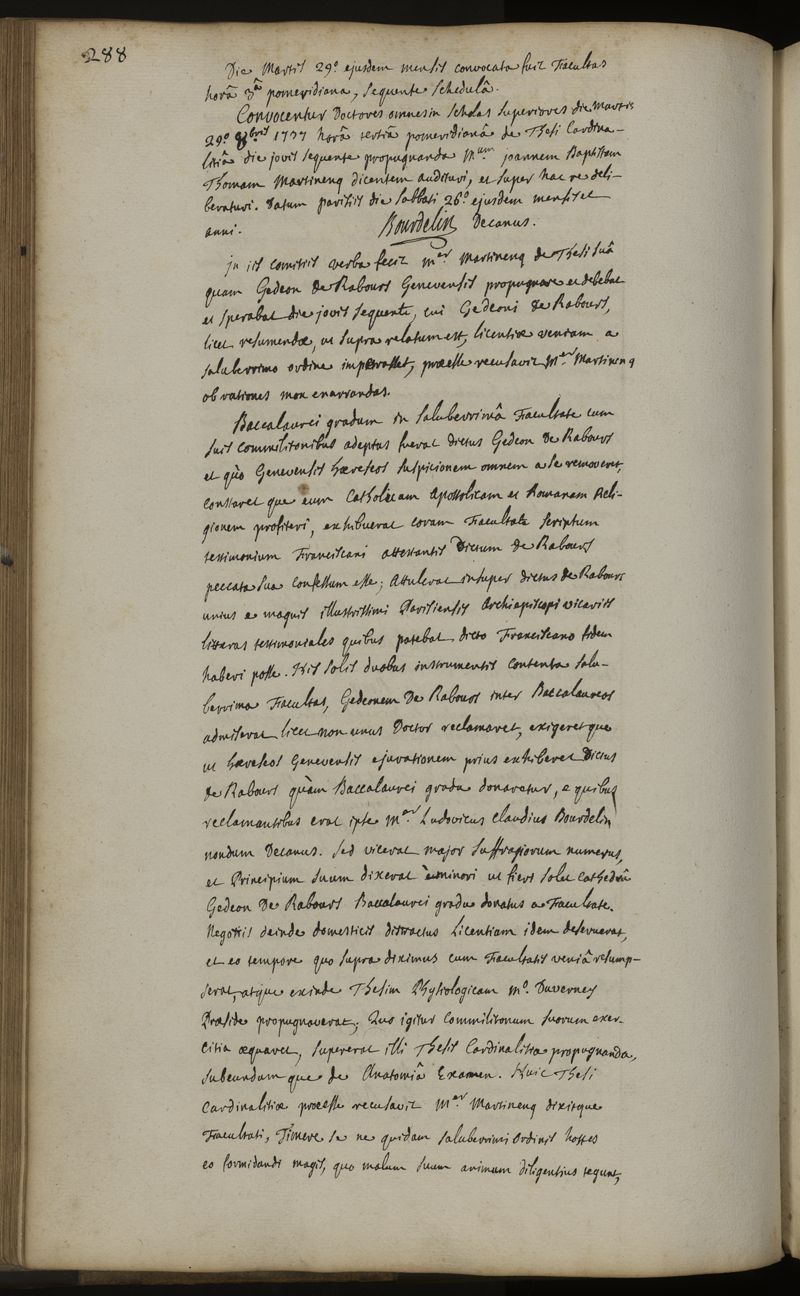 288
Die Martis 29.º ejusdem mensis convocata fuit Facultas
horâ 3.â pomeridiana, sequente schedulâ.
Convocentur Doctores omnes in scholas superiores die Martis
29.º 9.bris 1737 horâ tertiâ pomeridianâ de Thesi Cardina-
litiâ die jovis sequente propugnanda M.um joannem Baptistam
Thomam Martinenq dicentem audituri, et super hac re deli-
beraturi. Datum parisiis die sabbati 26.º ejusdem mensis et
anni. Bourdelin Decanus.
jn iis comitiis verba fecit m.er Martinenq de Thesi suâ
quam Gedeon de Rabours Genevensis propugnare et debebat
et sperabat die jovis sequente, cui Gedeoni de Rabours,
licet resumendæ, ut supra relatum est, licentiæ veniam a
saluberrimo ordine impetrasset, præesse recusavit M.er Martinenq
ob rationes mox enarrandas.
Baccalaurei gradum in saluberrimâ Facultate cum
suis commilitonibus adeptus fuerat dictus Gedeon De Rabours
et quo Genevensis hæreseos suspicionem omnem a se removeret,
constaret que eum Catholicam Apostolicam et Romanam Reli-
gionem profiteri, exhibuerat coram Facultate scriptum
testimonium Franciscani attestantis Dictum de Rabours
peccata sua confessum esse; Attulerat insuper dictus de Rabours
unius e magnis illustrissimi Parisiensis Archiepiscopi vicariis
litteras testimoniales quibus patebat dicto Franciscano fidem
haberi posse. His solis duobus instrumentis contenta salu-
berrima Facultas, Gedeonem De Rabours inter Baccalaureos
admiserat licet non unus Doctor reclamaret, exigeretque
ut hæreseos Genevensis ejurationem prius exhiberet Dictus
de Rabours quàm Baccalaurei gradu donaretur, e quibus
reclamantibus erat ipse M.er Ludovicus Claudius Bourdelin
nondum Decanus. Sed vicerat major suffragiorum numerus,
et Principium suum dixerat e minori ut fieri solet Cathedrâ
Gedeon De Rabours Baccalaurei gradu donatus a Facultate.
Negotiis deinde domesticis distractus Licentiam idem deseruerat,
et eo tempore quo supra diximus cum Facultatis veniâ resump-
serat, atque exinde Thesim Physiologicam M.º Duverney
Præside propugnaverat. Quo igitur commilitonum suorum exer-
citia æquaret, supererat illi Thesis Cardinalitia propugnanda,
subeundum que de Anatomiâ Examen. Huic Thesi
Cardinalitiæ præesse recusavit M.er Martinenq dixitque
Facultati, Timere se ne quidam saluberrimi Ordinis hostes
eo formidandi magis, quo malum suum animum diligentius tegunt,